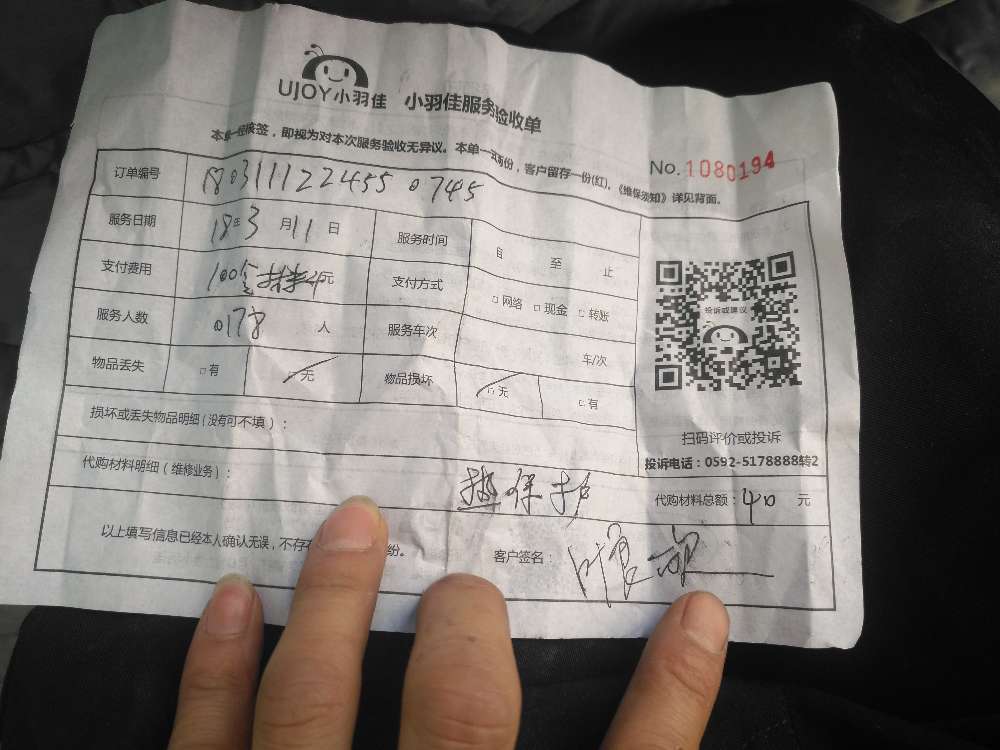 UJOY小羽佳 小羽佳服务验收单
本单一经核签，即视为对本次服务验收无异议。本单一式两份，客户留存一份(红)。《维保须知》详见背面。
No.1080194
订单编号 180311122455 0745
服务日期 18年3月11日 服务时间 自 至 止
支付费用 100 元 支付方式 □网络 □现金 □转账
服务人数 0178 人 服务车次 车/次
物品丢失 □有 □无 物品损坏 □无 □有
投诉或建议
扫码评价或投诉
投诉电话：0592-5178888转2
损坏或丢失物品明细(没有可不填)：
代购材料明细(维修业务)： 热保护
代购材料总额：40 元
以上填写信息已经本人确认无误，不存 纷。 客户签名：